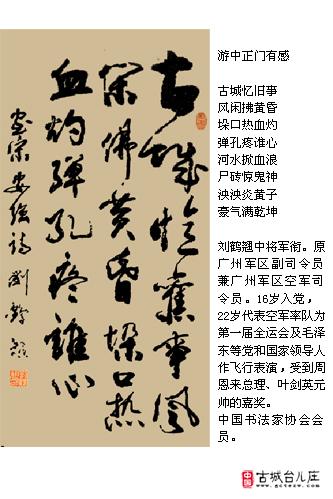 古城憶舊事風
閑佛黄昏垛口热
血灼弹孔疼誰心
游中正门有感
古城忆旧亊
风闲拂黄昏
垛口热血灼
弹孔疼谁心
河水掀血浪
尸砖惊鬼神
泱泱炎黄子
豪气满乾坤
刘鹤翘中将军衔。原
广州军区副司令员
兼广州军区空军司
令员。16岁入党，
22岁代表空军率队为
第一届全运会及毛泽
东等党和国家领导人
作飞行表演，受到周
恩来总理、叶剑英元
帅的嘉奖。
中国书法家协会会
员。
中国
古城台儿庄